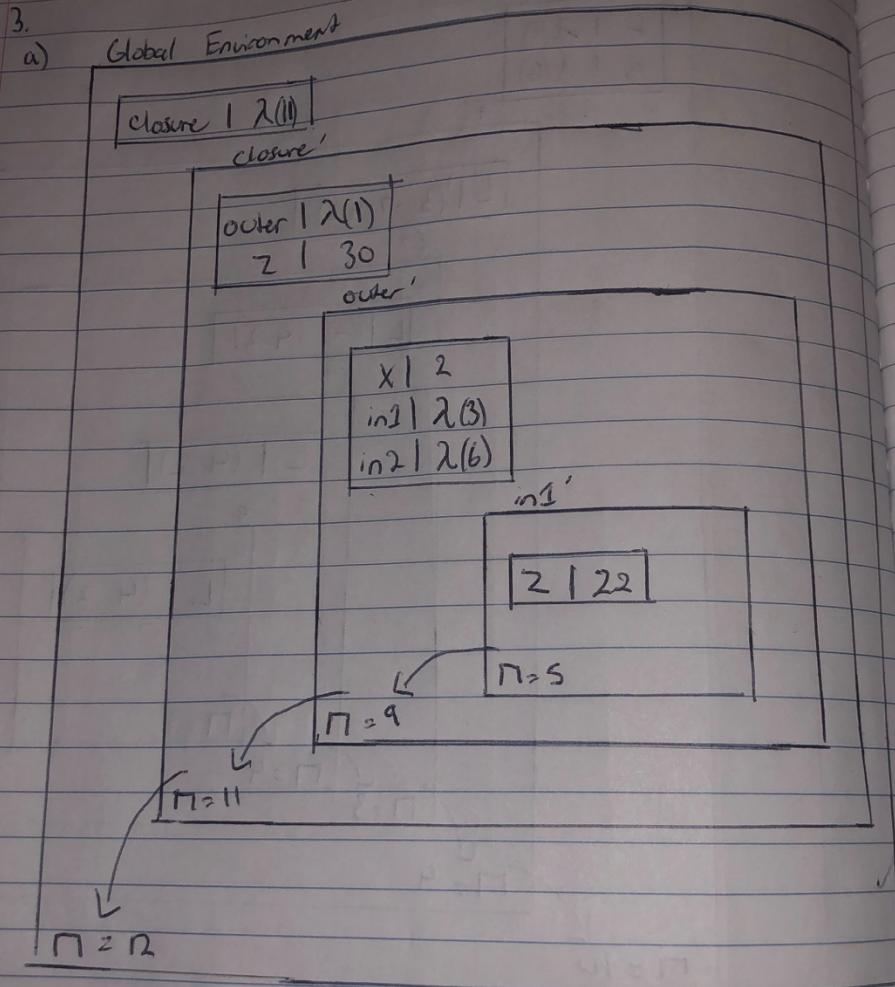 3.
a) Global Environment
closure | λ(11)
closure'
outer | λ(1)
z | 30
outer'
x | 2
in1 | λ(3)
in2 | λ(6)
in1'
z | 22
π=5
π=9
π=11
π=12